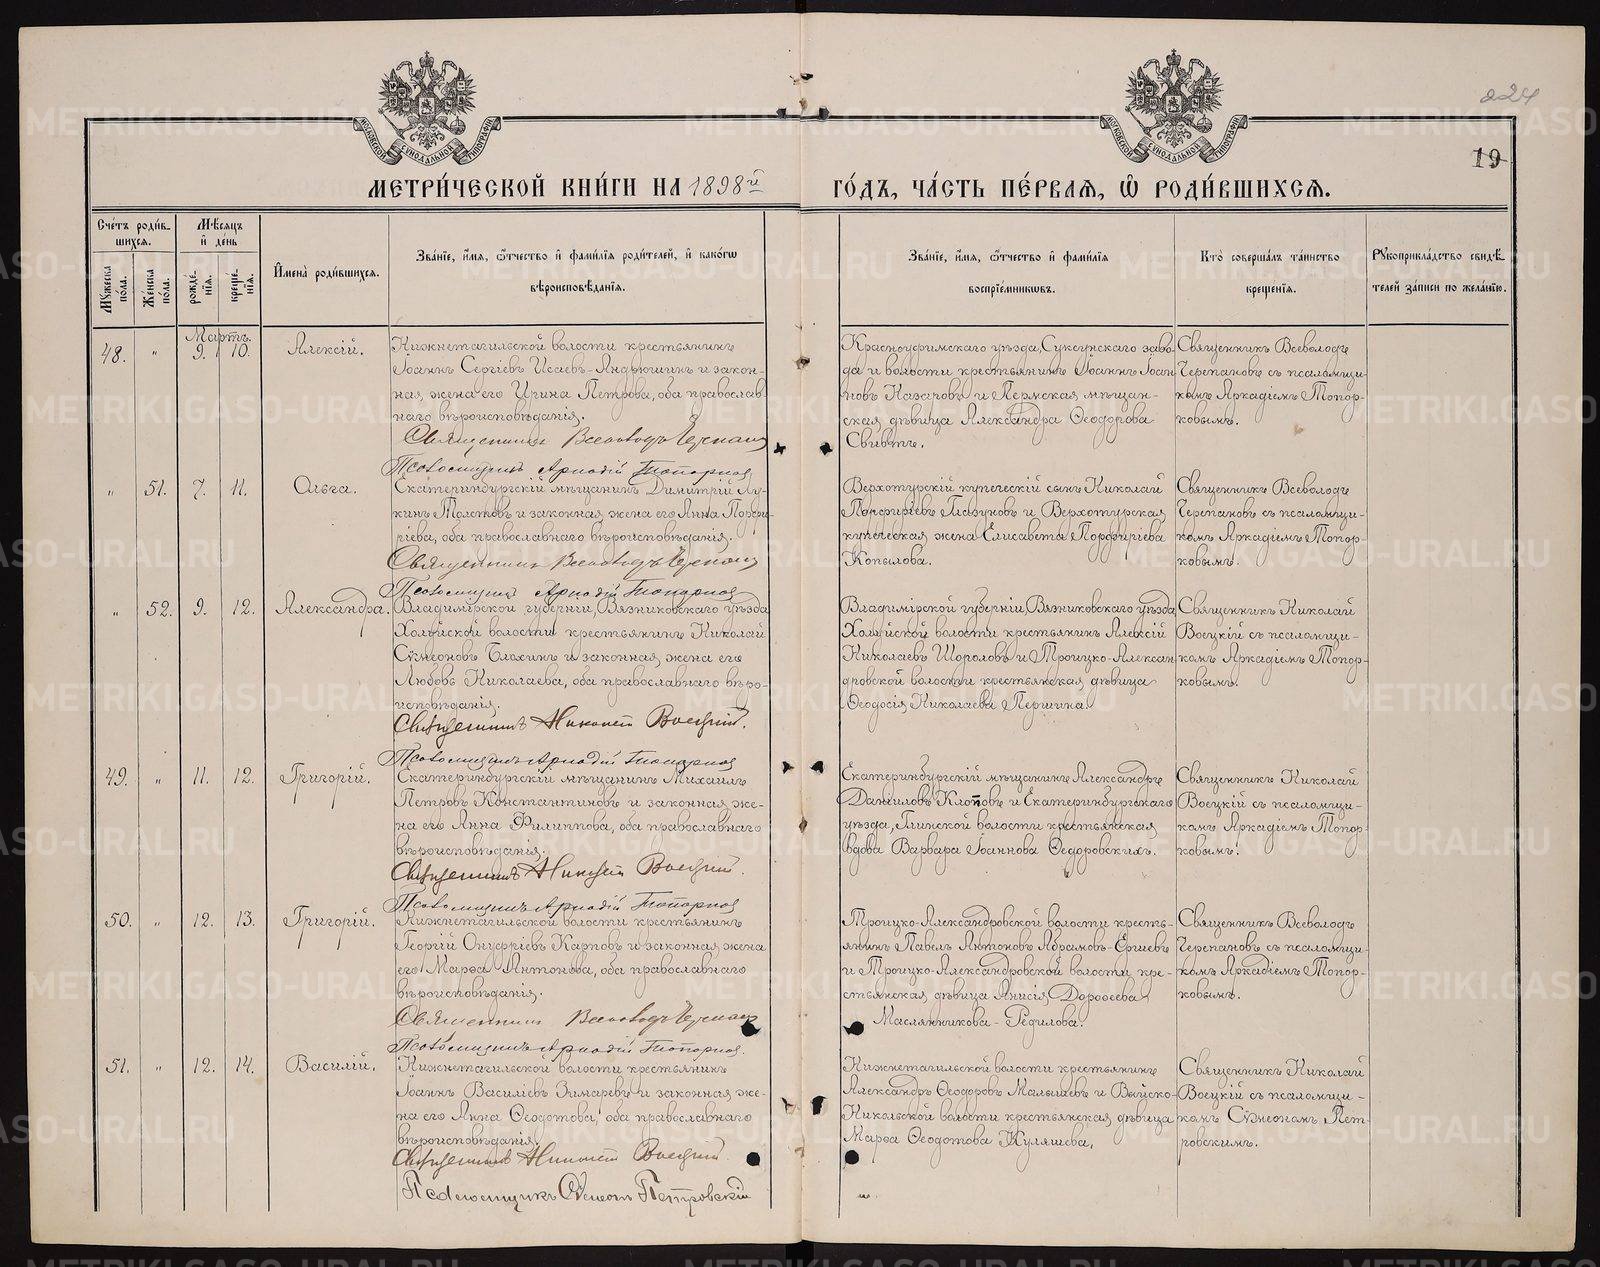 224
19
МЕТРИ́ЧЕСКОЙ КНИ́ГИ НА 1898й ГО́ДЪ, ЧА́СТЬ ПЕ́РВАЯ, Ѡ҆ РОДИ́ВШИХСЯ.
МОСКОВСКОЙ СѴНОДАЛЬНОЙ ТИПОГРАФІИ
МОСКОВСКОЙ СѴНОДАЛЬНОЙ ТИПОГРАФІИ
Сче́тъ роди́вшихся.
Му́жеска по́ла.
Же́нска по́ла.
Мѣ́сяцъ и҆ де́нь
рожде́нїя.
креще́нїя.
И҆мена̀ роди́вшихся.
Зва́нїе, и҆́мя, ѻ҆́тчество и҆ фами́лїя роди́телей, и҆ како́гѡ
вѣроисповѣ́данїя.
Зва́нїе, и҆́мя, ѻ҆́тчество и҆ фами́лїя
воспрїе́мникѡвъ.
Кто̀ соверша́лъ та́инство
креще́нїя.
Рукоприкла́дство свидѣ́-
телей за́писи по жела́нїю.
Мартъ.
48. " 9. 10. Алексій.
Нижнетагильской волости крестьянинъ
Іоаннъ Сергіевъ Исаевъ-Андрюшинъ и закон-
ная жена его Ирина Петрова, оба православ-
наго вѣроисповѣданія.
Священникъ Всеволодъ Черпановъ
Псаломщикъ Аркадій Топорковъ
Красноуфимскаго уѣзда, Суксунскаго заво-
да и волости крестьянинъ Іоаннъ Іоан-
новъ Назаровъ и Пермская мѣщан-
ская дѣвица Александра Ѳеодорова
Священникъ Всеволодъ
Черепановъ съ псаломщи-
комъ Аркадіемъ Топор-
ковымъ.
" 51. 7. 11. Ольга.
Екатеринбургскій мѣщанинъ Димитрій Лу-
кинъ Толстовъ и законная жена его Анна Порфи-
ріева, оба православнаго вѣроисповѣданія.
Священникъ Всеволодъ Черпановъ
Псаломщикъ Аркадій Топорковъ
Верхотурскій купеческій сынъ Николай
Порфиріевъ и Верхотурская
купеческая жена Елисавета Порфиріева
Копылова.
Священникъ Всеволодъ
Черепановъ съ псаломщи-
комъ Аркадіемъ Топор-
ковымъ.
" 52. 9. 12. Александра.
Владимірской губерніи, Вязниковскаго уѣзда
Холуйской волости крестьянинъ Николай
Сѵмеоновъ Блохинъ и законная жена его
Любовь Николаева, оба православнаго вѣро-
исповѣданія.
Священникъ Николай Воецкій.
Псаломщикъ Аркадій Топорковъ
Владимірской губерніи, Вязниковскаго уѣзда
Холуйской волости крестьянинъ Алексій
Николаевъ и Троицко-Алексан-
дровской волости крестьянская дѣвица
Ѳеодосія Николаева Першина.
Священникъ Николай
Воецкій съ псаломщи-
комъ Аркадіемъ Топор-
ковымъ.
49. " 11. 12. Григорій.
Екатеринбургскій мѣщанинъ Михаилъ
Петровъ Константиновъ и законная же-
на его Анна Филиппова, оба православнаго
вѣроисповѣданія.
Священникъ Николай Воецкій.
Псаломщикъ Аркадій Топорковъ
Екатеринбургскій мѣщанинъ Александръ
Даніиловъ Клоповъ и Екатеринбургскаго
уѣзда, Глинской волости крестьянская
вдова Варвара Іоаннова Ѳедоровскихъ.
Священникъ Николай
Воецкій съ псаломщи-
комъ Аркадіемъ Топор-
ковымъ.
50. " 12. 13. Григорій.
Нижнетагильской волости крестьянинъ
Георгій Онуфріевъ Карповъ и законная жена
его Марѳа Антонова, оба православнаго
вѣроисповѣданія.
Священникъ Всеволодъ Черпановъ
Псаломщикъ Аркадій Топорковъ.
Троицко-Александровской волости кресть-
янинъ Павелъ Антоновъ Абрамовъ-Ергіевъ
и Троицко-Александровской волости кре-
стьянская дѣвица Анисія Дороѳеева
Маслянникова-Редилова.
Священникъ Всеволодъ
Черепановъ съ псаломщи-
комъ Аркадіемъ Топор-
ковымъ.
51. " 12. 14. Василій.
Нижнетагильской волости крестьянинъ
Іоаннъ Василіевъ Зимаревъ и законная же-
на его Анна Ѳеодотова, оба православнаго
вѣроисповѣданія.
Священникъ Николай Воецкій.
Псаломщикъ Сѵмеонъ Петровскій
Нижнетагильской волости крестьянинъ
Александръ Ѳеодоровъ Малышевъ и Выйско-
Никольской волости крестьянская дѣвица
Марѳа Ѳеодотова Куляшева,
Священникъ Николай
Воецкій съ псаломщи-
комъ Сѵмеономъ Пет-
ровскимъ.
METRIKI.GASO-URAL.RU